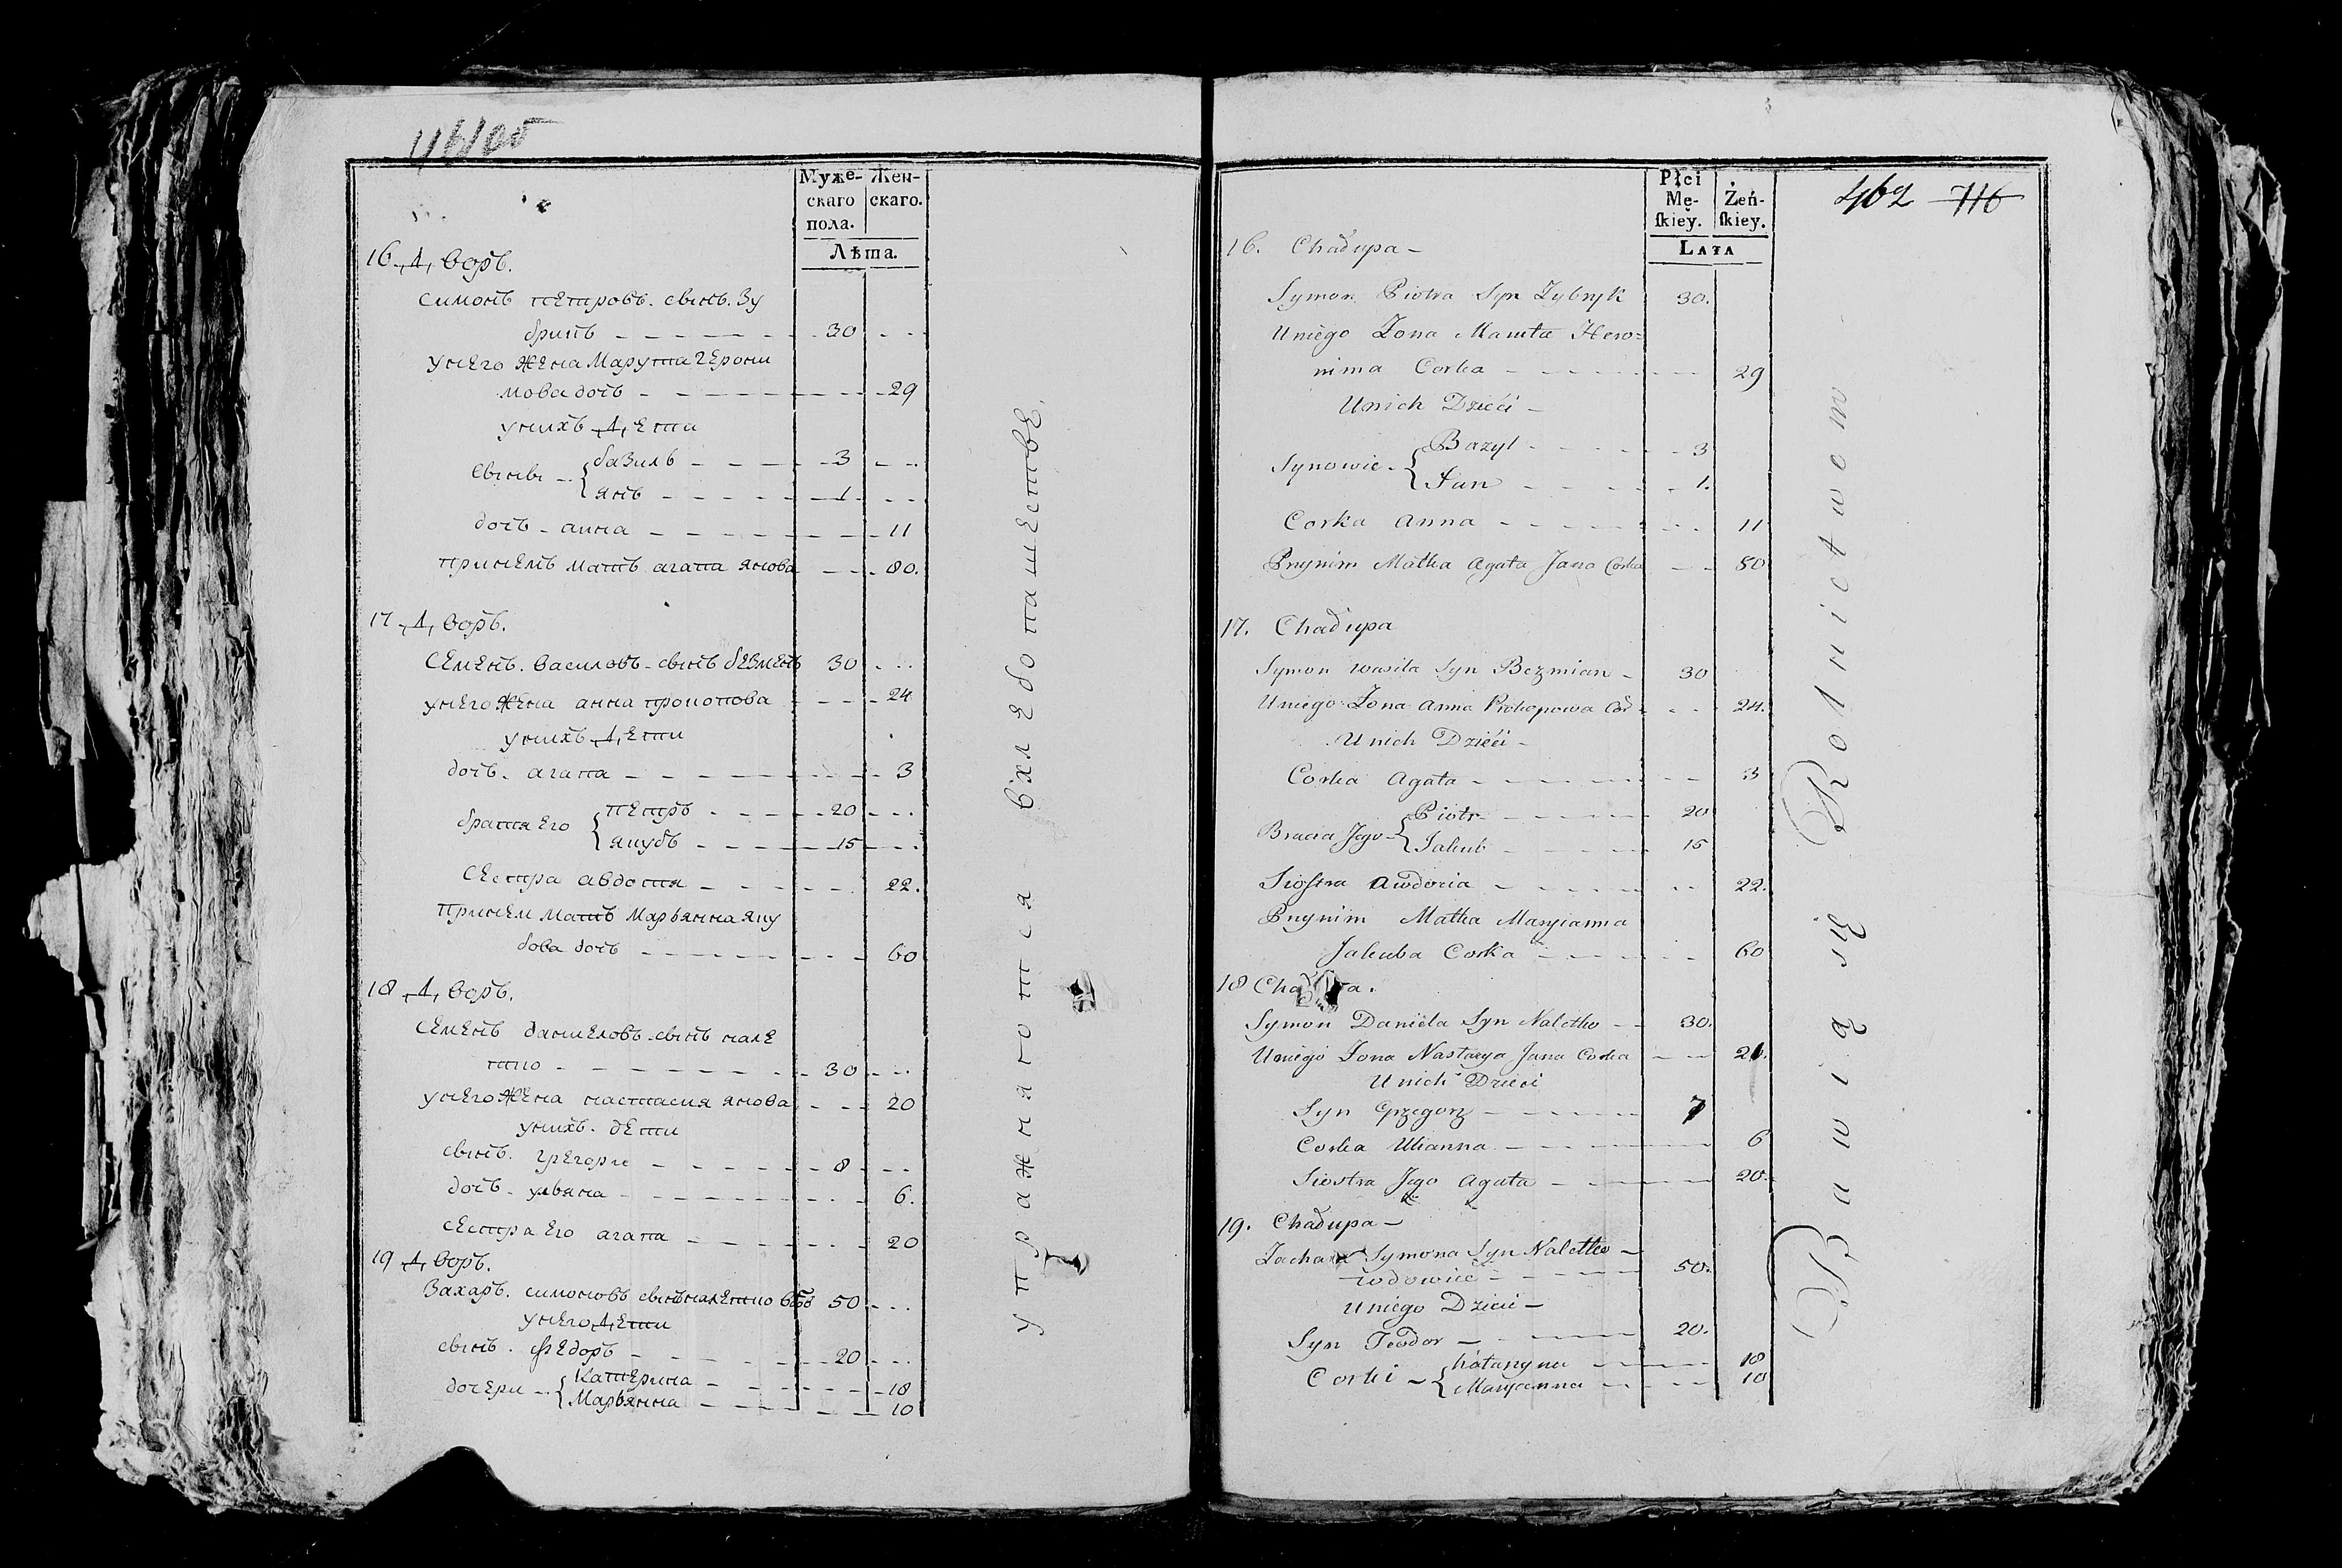 Муже-
скаго
пола.
Жен-
скаго.
Лѣта.
16 Дворъ.
Симонъ петровъ. сынъ. Зу
брикъ 30
унего жена Марута герони
мова дочь 29
унихъ дети
сыны базиль 3
янъ 1
дочь анна 11
принемъ мать агата янова 80.
17 Дворъ.
Семенъ. василовъ сынъ безменъ 30
унего жена анна прокопова 24
унихъ дети
дочь. агата 3
братя его петръ 20
якубъ 15
Сестра авдотя 22.
Принем мать Марьянна яку
бова дочь 60
18 Дворъ.
Семенъ данеловъ сынъ нале
тко 30
унего жена настасия янова 20
унихъ. дети
сынъ. грегори 8
дочь. ульяна 6.
сестра его агата 20
19 Дворъ.
Захаръ. симоновъ сынъ налетко 50
унего дети
сынъ. федоръ 20
дочери Катерина 18
Марьянна 10
упражняются вхлебопашестве.
462 716
Płci
Mę-
skiey.
Żeń-
skiey.
Lata
16. Chałupa
Symon Piotra Syn Zybryk 30.
Uniego Zona Maruta Hero=
nima Corka 29
Unich Dzieci
Synowie Bazyl 3
Jan 1.
Corka Anna 11
Przynim Matka Agata Jana Corka 80
17. Chałupa
Symon Wasila Syn Bezmian 30
Uniego Zona Anna Prokopowa Cor 24.
Unich Dzieci
Corka Agata 3
Bracia Jego Piotr 20
Jakub 15
Siostra Awdocia 22.
Przynim Matka Maryianna
Jakuba Corka 60
18 Chałupa.
Symon Daniela Syn Naletko 30.
Uniego Zona Nastazya Jana Corka
Unich Dzieci
Syn Grzegorz 7
Corka Ulianna 6
Siostra Jego Agata 20.
19. Chałupa
Zachar Symona Syn Naletko
wdowiec 50.
Uniego Dzieci
Syn Teodor 20.
Corki Katarzyna 18
Maryanna 10
Bawią się Rolnictwem